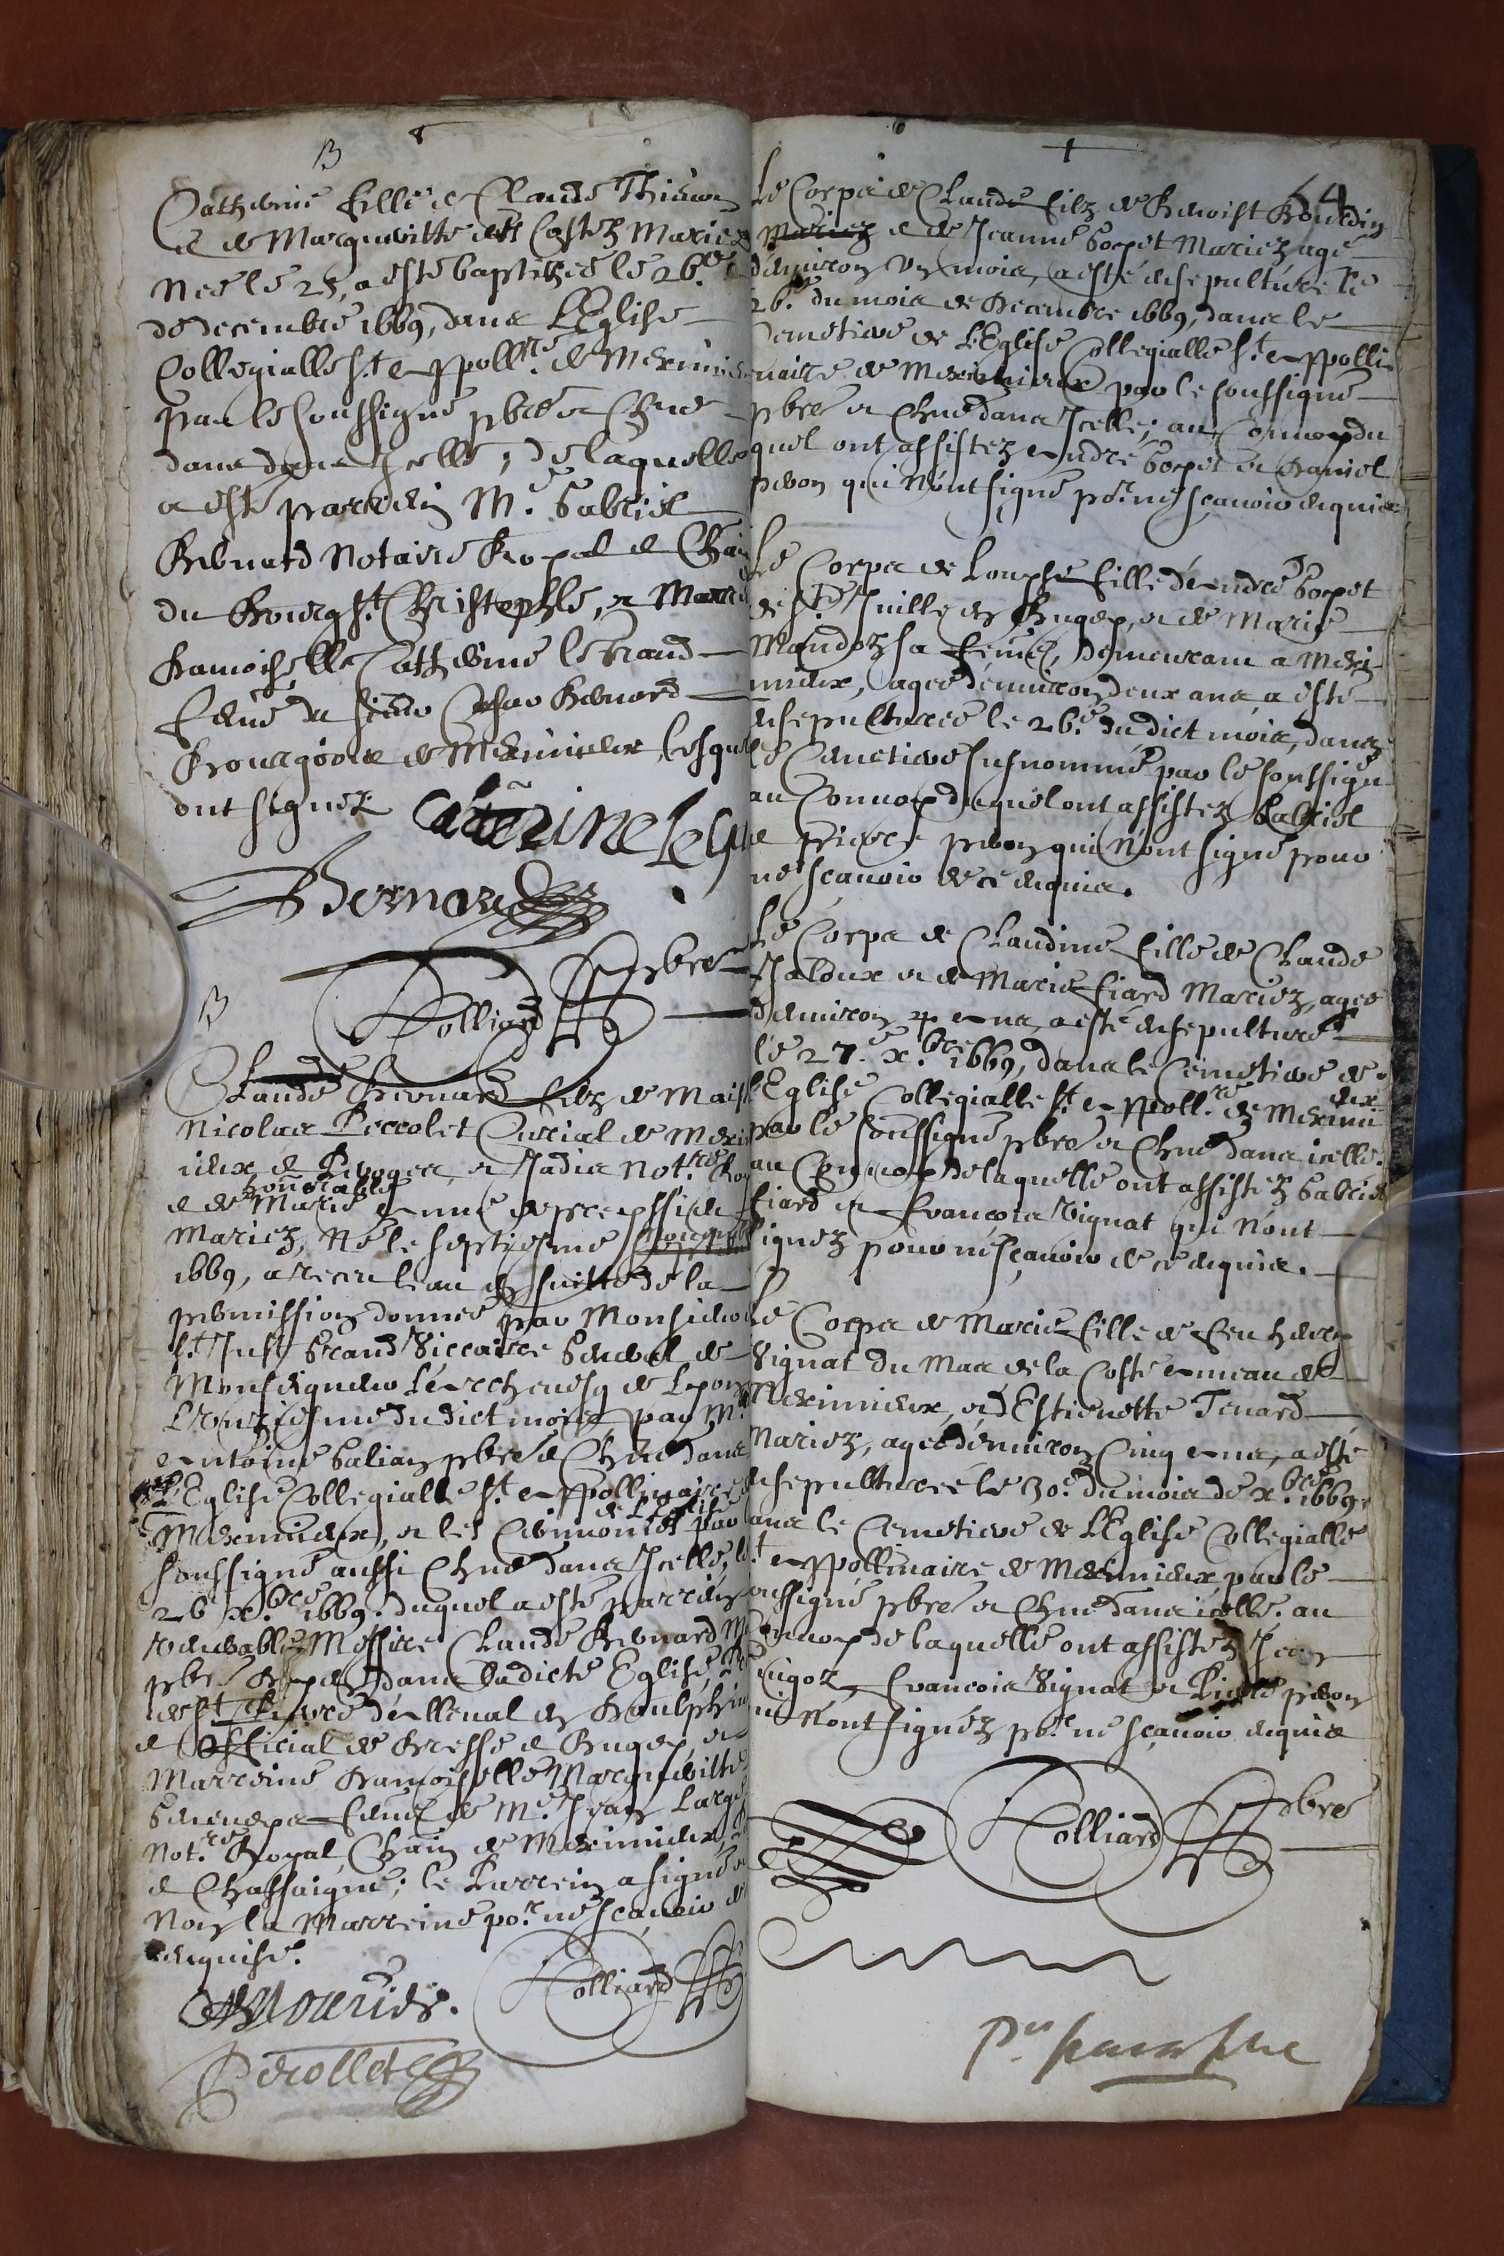 B
Catherine fille de Claude Thieuon
& de Margueritte des Costez Mariez
Nee le 25, a esté baptisee le 26.e
de decembre 1669, dans L'Eglise
Collegialle St. Appollre de Meximieux
par le soussigné pbre et Chne
dans dans Jcelle; de laquelle
a esté parrein Me. Gabriel
Bernard Notaire Royal & Chain
du Bourg St. Christophle, et Marreine
Damoiselle Catherine legrand
femme du sieur Cesar Bernard
Bourgois de Meximieux, lesquels
ont signez
Catherine Legra
Bernard
Rolliard pbre
B
Claude Bernard filz de Maistre
Nicolas Perrolet Curial de Mexi
mieux & Peroges, et Jadis Notre. Roy
honnorable
& de Marie
Mariez, Né le septiesme
1669, a receu l'eau en suitte de la
permission donnee par Monsieur
St. Just Grand Viccaire General de
Monseigneur L'Archevesq de Lyon
L'onziesme du dict mois par Mre
Antoine Galian pbre & Chne dans
L'Eglise Collegialle St. Appollinaire
de L'Eglise
Meximieux, et les Ceremonies par
soussigné aussi Chne dans Jcelle, le
26 x.bre 1669. duquel a esté parrein
venerable Messire Claude Bernard
pbre Doyen dans Ladicte Eglise,
de St. Pierre d'Allenal en Daulphiné
& Official de Bresse & Bugey, et
Marreine Damoiselle Margueritte
femme de Me. Jean Large
Notre. Royal Chain de Meximieux
& Chassaigne; le Parrein a signé
Non la Marreine por. ne scavoir de
enquise.
Rolliard
Perollet
54
Le Corps de Claude filz de Benoist Bourdin
Mariez & de Jeanne Goyet Mariez agé
d'environ un mois, a esté ensepulturé le
26.e du mois de Decembre 1669, dans le
Cemetiere de L'Eglise Collegialle St. Appolli
naire de Meximieux par le soussigné
pbre et Chne dans Jcelle; au Convoy du
quel ont assistez Andre Goyet et Daniel
peron qui N'ont signé por. ne sçavoir enquis
Le Corps de Louyse fille d'Andre Goyet
de St. Juille en Bugey, et de Marie
Mandon sa femme, demeurant a Mexi
mieux, agee d'environ deux ans, a esté
ensepulturee le 26.e du dict mois, dans
le Cemetiere susnommé par le soussigné
au Convoy duquel ont assistez Gabriel
& pierre peron qui N'ont signé pour
ne sçavoir de ce enquis.
Le Corps de Claudine fille de Claude
Jaloux et de Marie fiard Mariez, agee
d'environ 4 Ans, a esté ensepulturé
le 27.e x.bre 1669, dans le Cemetiere de
L'Eglise Collegialle St. Appoll.re de Meximi
eux
par le soussigné pbre et Chne dans icelle.
au Convoy de laquelle ont assistez Gabriel
fiard et François Vignat qui N'ont
signez pour ne sçavoir de ce enquis.
Le Corps de Marie fille de feu
Vignat du Mas de la Coste Ameau de
Meximieux, et d'Estienette Tenard
Mariez, agee d'environ Cinq Ans, a esté
ensepulturee le 30.e du mois de x.bre 1669
dans le Cemetiere de L'Eglise Collegialle
St. Appollinaire de Meximieux, par le
soussigné pbre et Chne dans icelle. au
Convoy de laquelle ont assistez Jean
François Vignat et Pierre peron
qui N'ont signéz por. ne sçavoir enquis
Rolliard pbre